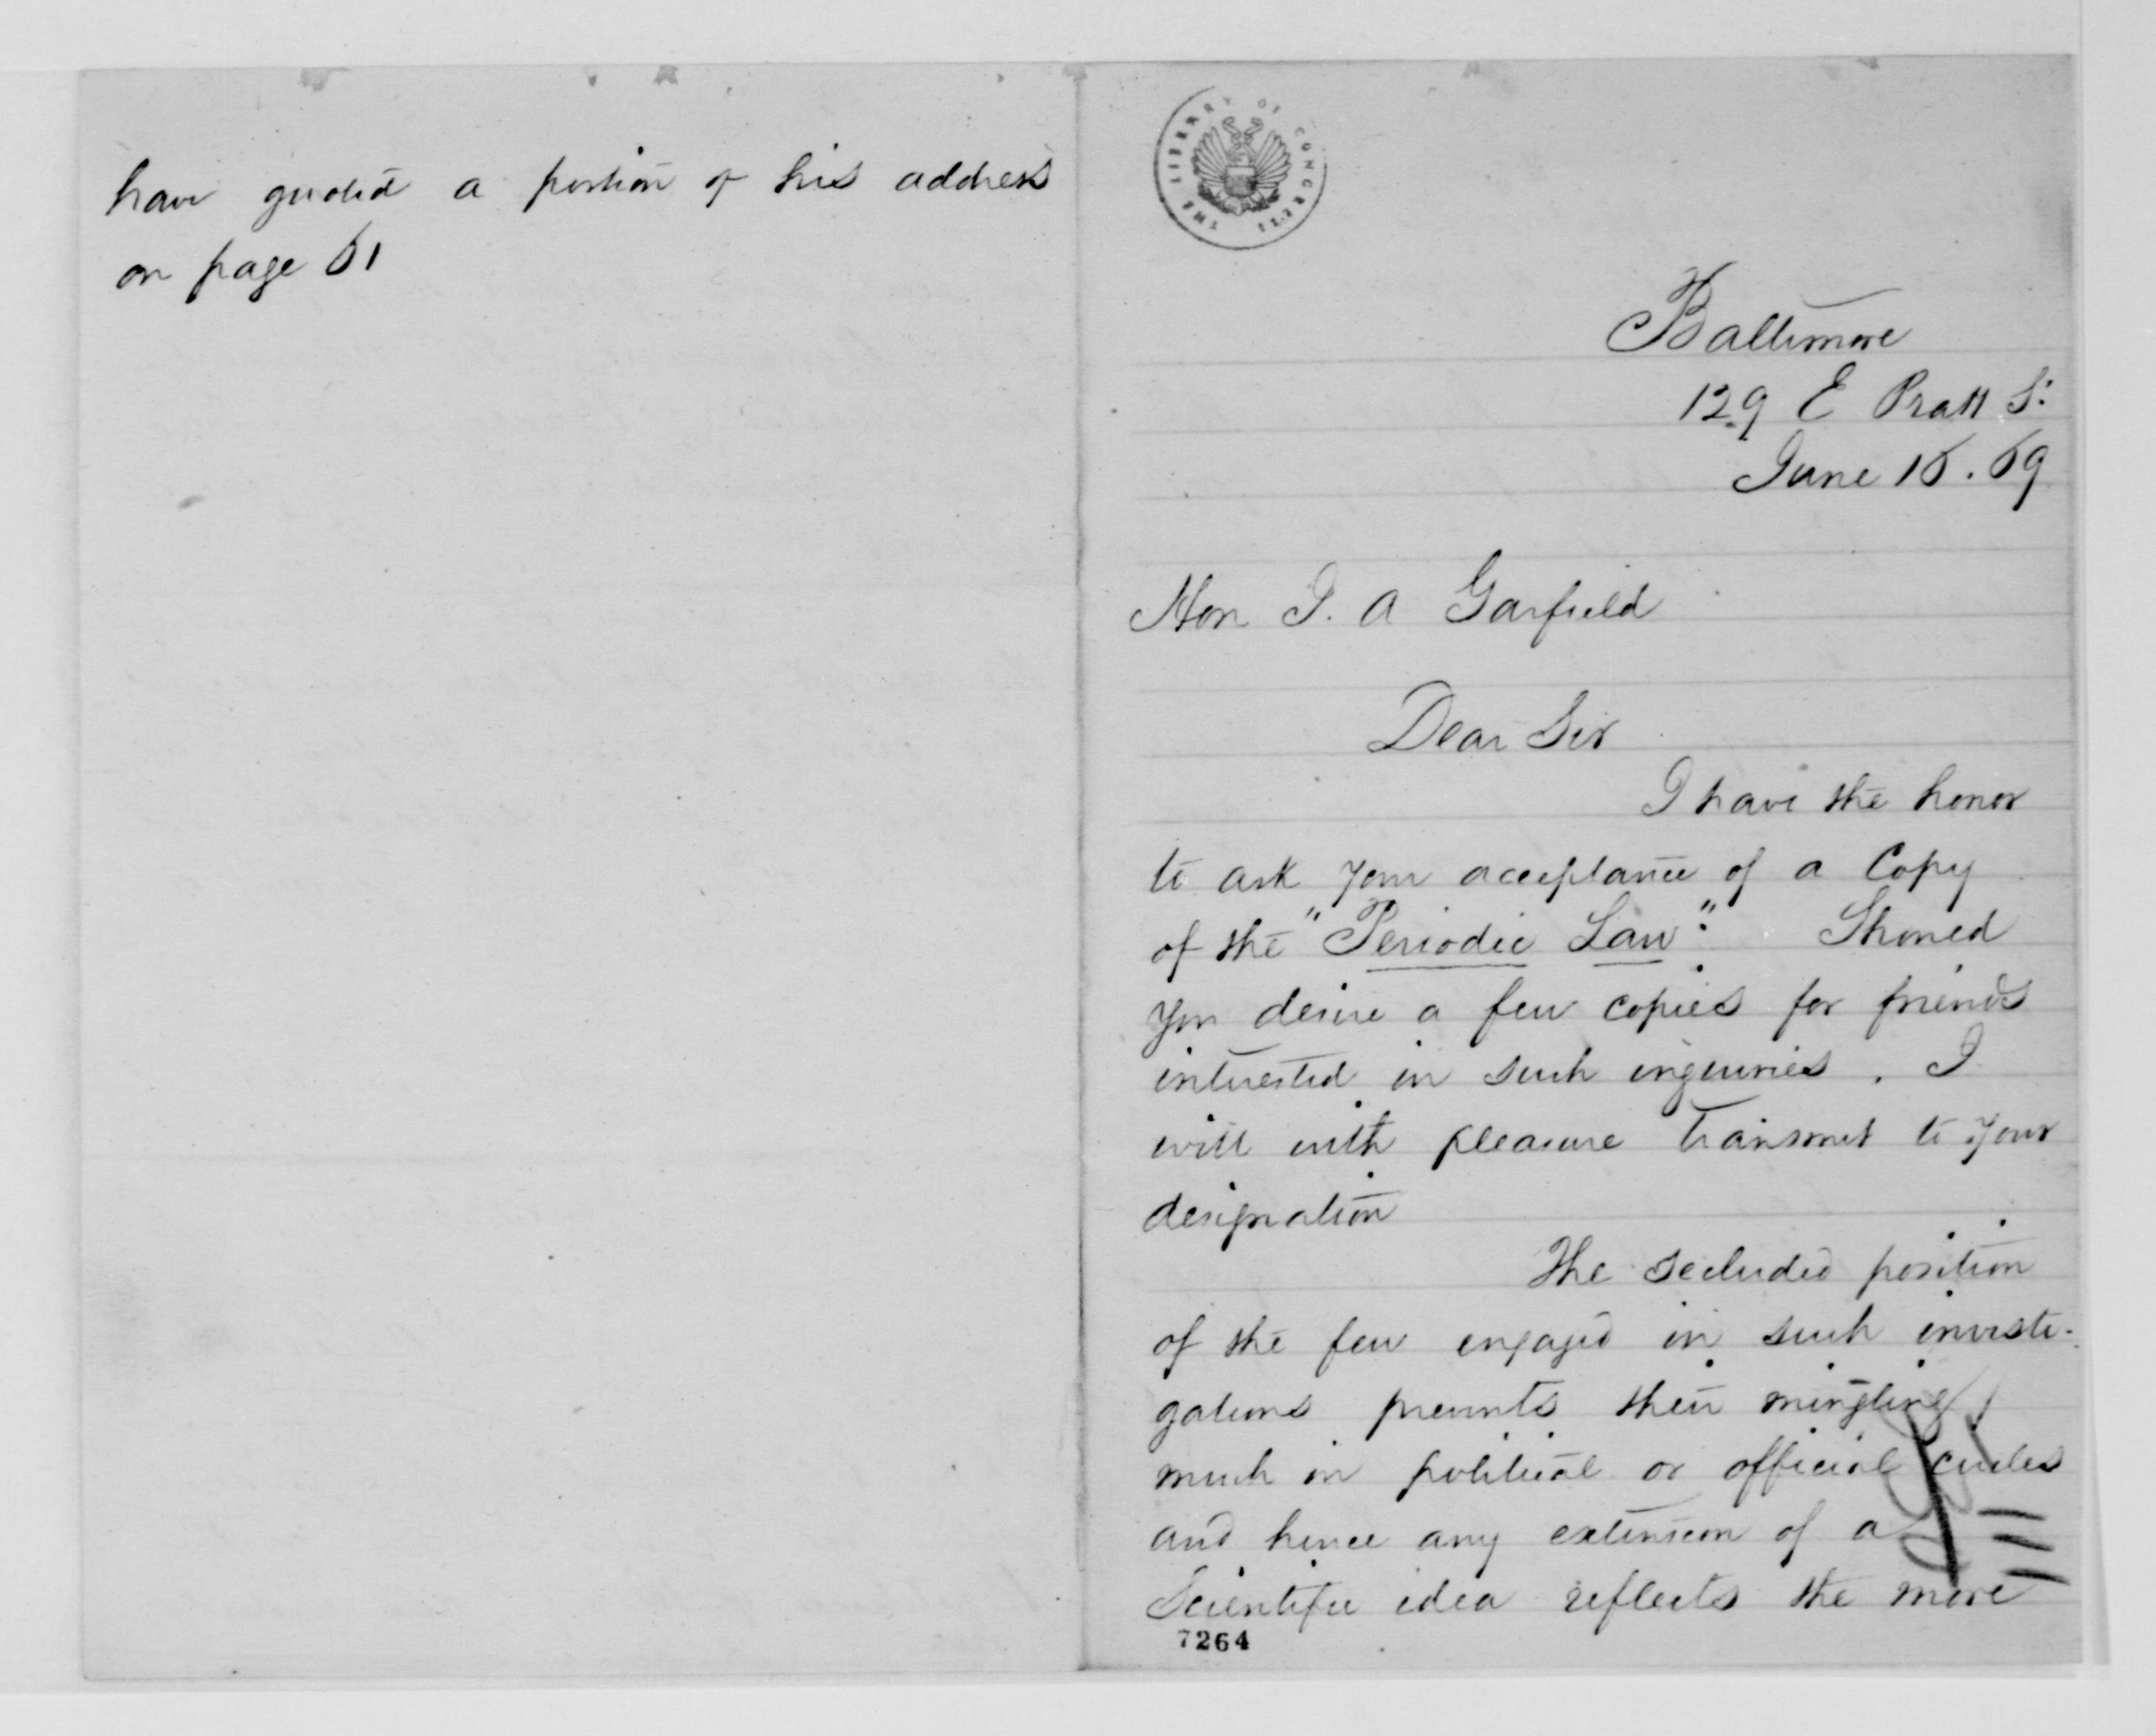 have quoted a portion of his address
on page 61
THE LIBRARY OF CONGRESS
Baltimore
129 E Pratt St
June 16. 69
Hon J. A Garfield
Dear Sir
I have the honor
to ask your acceptance of a Copy
of the "Periodic Law". Should
you desire a few copies for friends
interested in such inquiries. I
will with pleasure transmit to your
designation
The secluded position
of the few engaged in such investi-
gations prevents their mingling
much in political or official circles
and hence any extension of a
Scientific idea reflects the more
7264